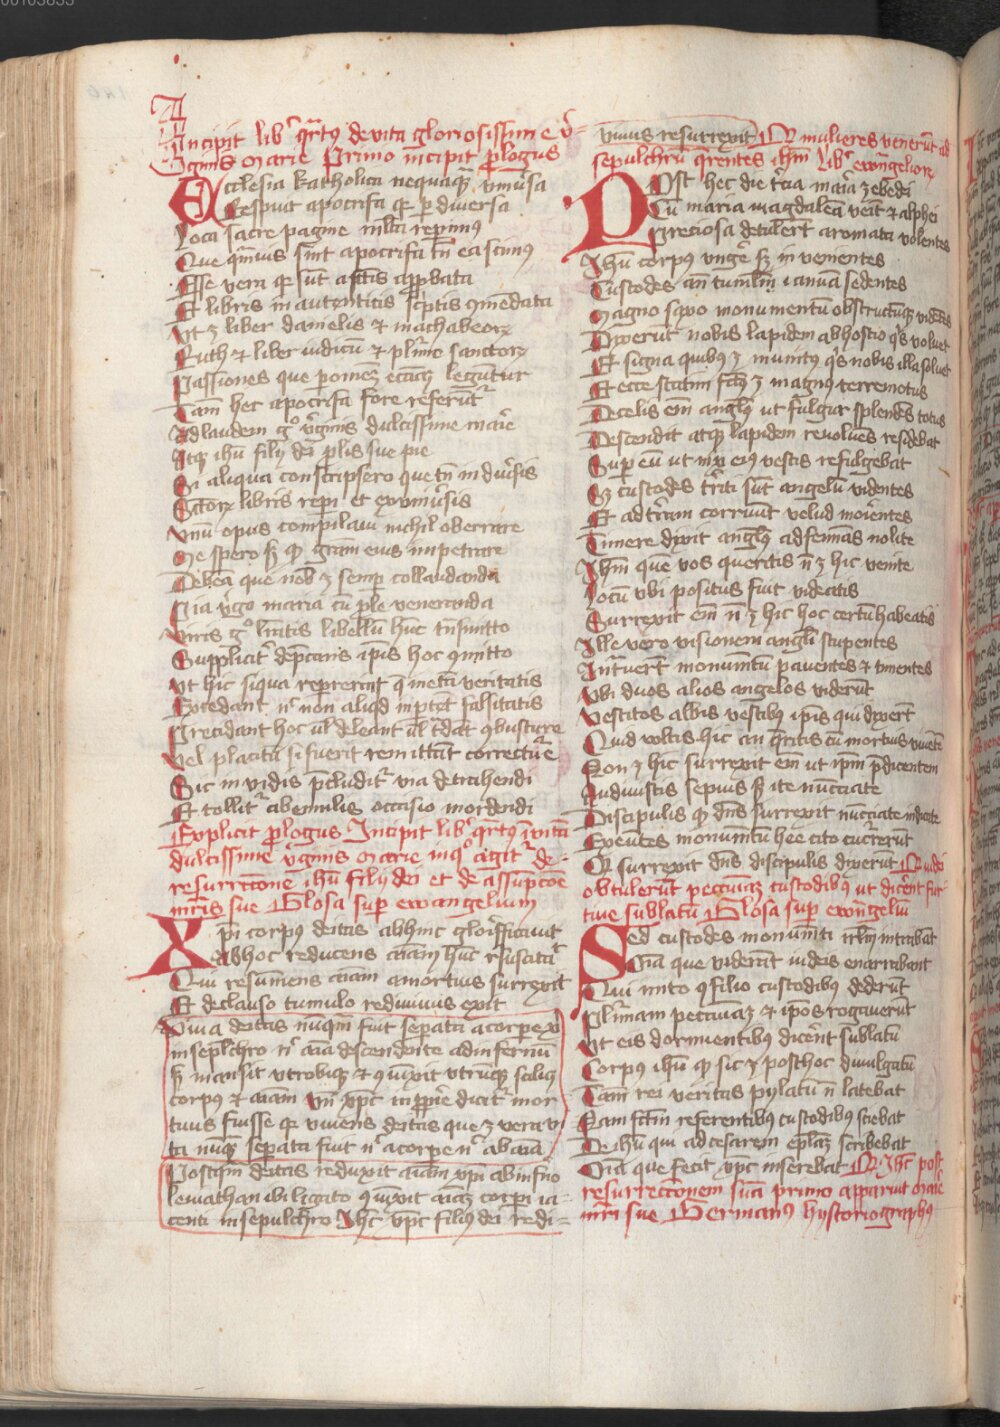 00103855
Incipit lib' qrtus de vita gloriosissime v'
ginis Marie Primo incipit plogus
Ecclesia katholica nequaqz vniusa
Respuit apocrifa qz p diuersa
Loca sacre pagine mlta repimus
Que quis sint apocrifa tn ea scimus
Esse vera qz sut aptis approbata
Et libris in autenticis sciptis cmedata
Vt z liber danielis et machabeorz
Ruth et liber iudicu et plime sanctorz
Passiones que p omez eccaz legutur
Tam hec apocrifa fore referut'
Ad laudem g° v'ginis dulcissime marie
Atqz ihu filij dei plis sue pie
Si aliqua conscripsero que tn in diu'sis
Sctorz libris repi et ex vniu'sis
Vnu opus compilaui nichil oberrare
Me spero sz qz gram eius impetrare
Debea que nob z semp collaudanda
Pia v'go maria cu ple veneranda
Viris g° lratis libellu huc tnsmitto
Supplicit' depcans ipis hoc cmitto
Vt hic siqua reprerint q meta veritatis
Excedant n' non aliqd inptet falsitatis
Precidant hoc ul deleant ul tdat cbusture
Vel placita si fuerit remittant correcture
Sic inuidis pcludit' via detrahendi
Et tollit' ab emulis occasio mordendi
Explicit plogus Incipit lib' qrtus i vita
dulcissime v'ginis Marie in q° agit' de
resurrectione ihu filij dei et de assumpcoe
mris sue Glosa sup ewangelium
Xpi corpus deitas abhinc glorificauit
Abhoc reducens aiam huc rsuscitat
Qui resumens aiam a mortuis surrexit
Et de clauso tumulo rediuiuus exit
Viua deitas nuqm fuit sepata a corpe xpi
in seplchro n' aia descendente ad infernu
sz mansit vtrobiqz et cuixit vtrumqz scilicz
corpus et aiam Vn xpc in pprie dicit' mor
tuus fuisse qz viuens deitas que z vera vi
ta nuqz sepata fuit n' a corpe n' ab aia
Postqm deitas reduxit aiam xpi ab inferno
leuiathan ibi ligato cuixit eaz corpi ia
centi in sepulchro Ihc xpc filius dei redi
viuus resurrexit Qz mulieres venerut ad
sepulchru qrentes ihm Lib' ewangeliorz
Post hec die t'cia maria zebedi
Cu maria magdalea veit et alphei
Preciosa detulert aromata volentes
Ihu corpus vnge sz in venientes
Custodes an tumlm ianuam sedentes
Magno saxo monumentu obstructuqz videtes
Dixerut nobis lapidem ab hostio qs voluet
Et signa quibus z munitus qs nobis illa soluet
Et ecce statim fcus z magnus terremotus
De celis em anglus ut fulgur splendes totus
Descendit atqz lapidem reuolues residebat
Sup eu ut nix eius vestis refulgebat
Sz custodes t'riti sut angelu videntes
Et ad t'ram corruut velud morientes
Timere dixit anglus ad feminas nolite
Ihm que vos queritis n z hic venite
Locu vbi positus fuit videatis
Surrexit em n z hic hoc certu habeatis
Ille vero visionem angli stupentes
Intuert monumtu pauentes et timentes
Vbi duos alios angelos viderut
Vestitos albis vestibus ipis qui dixert
Quid vultis hic an qritis cu mortuis viuete
Non z hic surrexit em ut ipm pdicentem
Audiuistis sepius sz ite nucciate
Discipulis qz dns surrexit nucciate indicate
Exeuntes monumtu hee cito cucurrerut
Qz surrexit dns discipulis dixerut Qz iudei
obtulerut peccuniaz custodibus ut dicent fur
tiue sublatu Glosa sup ewageliu
Sed custodes monumti irlm intrabat
Oia que viderat iudeis enarrabant
Qui inito csilio custodibus dederut
Plimam peccuniaz et ipos rogauerut
Vt eis dormientibus dicent sublatu
Corpus ihu qz sic z post hoc diuulgatu
Tam rei veritas pylatu n latebat
Nam fctm referentibus custodibus sciebat
De ihu qui ad cesarem eplaz scribebat
Oia que fecit xpc inserebat Qz Ihc post
resurrectionem sua primo apparuit Marie
mri sue Germanus hystoriographus